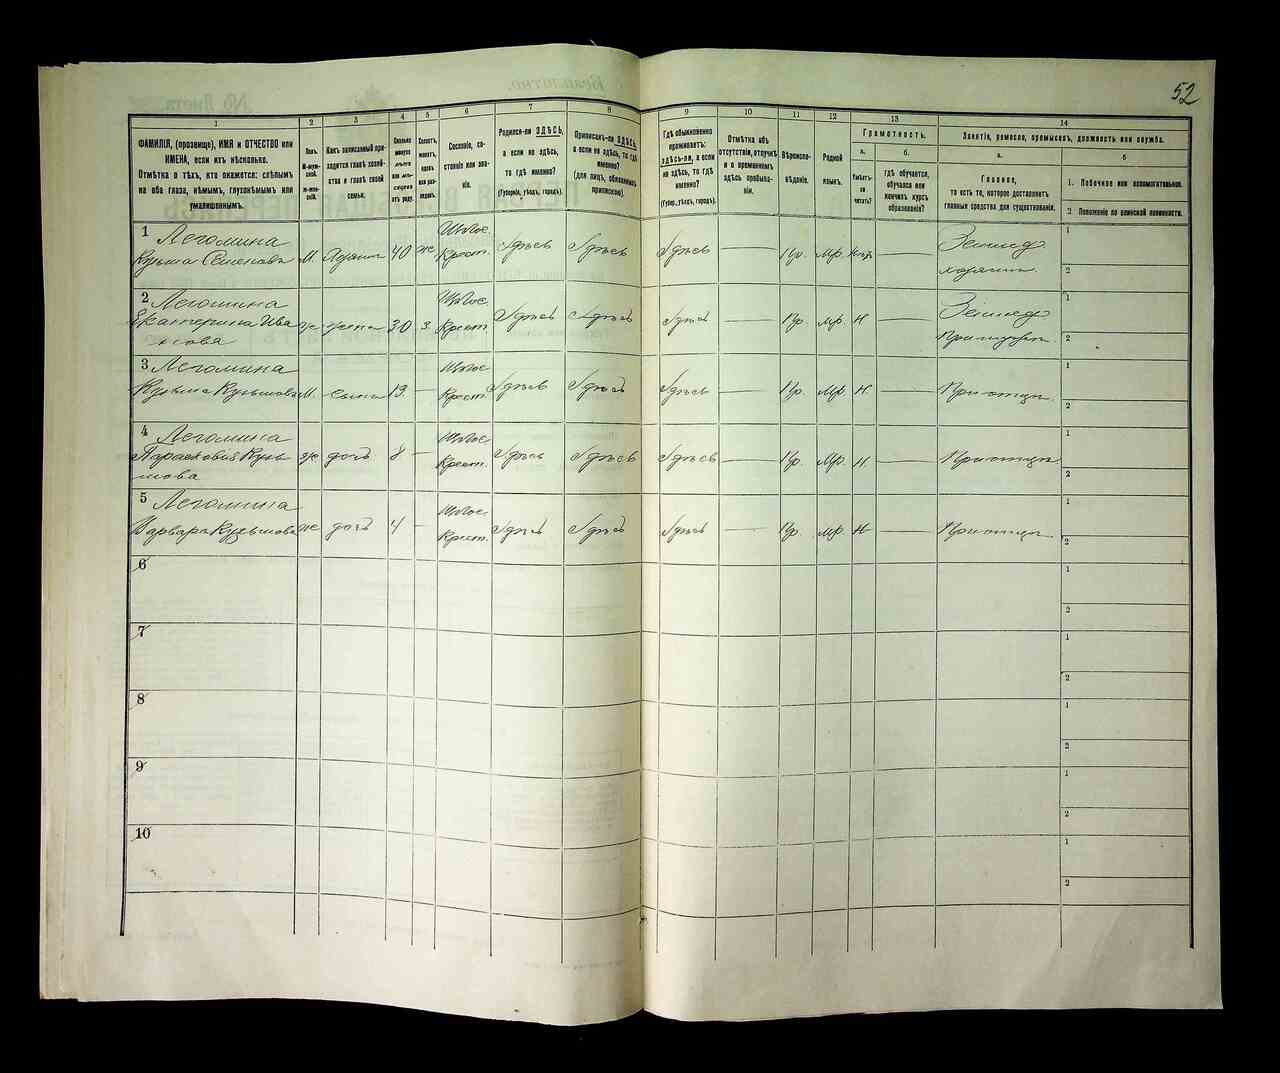 52
1
2
3
4
5
6
7
8
9
10
11
12
13
14
ФАМИЛІЯ, (прозвище), ИМЯ и ОТЧЕСТВО или
ИМЕНА, если ихъ нѣсколько.
Отмѣтка о тѣхъ, кто окажется: слѣпымъ
на оба глаза, нѣмымъ, глухонѣмымъ или
умалишеннымъ.
Полъ.
Какъ записанный при-
ходится главѣ хозяй-
ства и главѣ своей
семьи.
Сколько
минуло
лѣтъ
или мѣ-
сяцевъ
отъ роду.
Холостъ,
женатъ,
вдовъ
или раз-
веденъ.
Сословіе, со-
стояніе или зва-
ніе.
Родился-ли ЗДѢСЬ,
а если не здѣсь,
то гдѣ именно?
(Губернія, уѣздъ, городъ).
Приписанъ-ли ЗДѢСЬ,
а если не здѣсь, то гдѣ
именно?
(для лицъ, обязанныхъ
припискою).
Гдѣ обыкновенно
проживаетъ:
ЗДѢСЬ-ли, а если
не здѣсь, то гдѣ
именно?
(Губер., уѣздъ, городъ).
Отмѣтка объ
отсутствіи, отлучкѣ
и о временномъ
здѣсь пребыва-
ніи.
Вѣроиспо-
вѣданіе.
Родной
языкъ.
Грамотность.
а.
Умѣетъ-
ли
читать?
б.
гдѣ обучается,
обучался или
кончилъ курсъ
образованія?
Занятіе, ремесло, промыселъ, должность или служба.
а.
Главное,
то есть то, которое доставляетъ
главныя средства для существованія.
б
1. Побочное или вспомогательное.
2. Положеніе по воинской повинности.
1 Легомина
Кузьма Семеновъ М. 40 Крест. Здѣсь Здѣсь Здѣсь — Пр. Мр. —
Землед
хозяинъ
1
2
2 Легомина
Екатерина Ива
нова ж жена 30 з. Крест. Здѣсь Здѣсь Здѣсь — Пр. Мр. Н —
Землед
1
2
3 Легомина
Кузьма Кузьмовъ М. сынъ 13 — Крест. Здѣсь Здѣсь Здѣсь — Пр. Мр. Н. —
1
2
4 Легомина
Парасковия Кузь
мова ж дочь 8 — Крест. Здѣсь Здѣсь Здѣсь — Пр. Мр. Н. —
1
2
5 Легомина
Варвара Кузьмова ж дочь 4 — Крест. Здѣсь Здѣсь Здѣсь — Пр. Мр. Н —
1
2
6
1
2
7
1
2
8
1
2
9
1
2
10
1
2